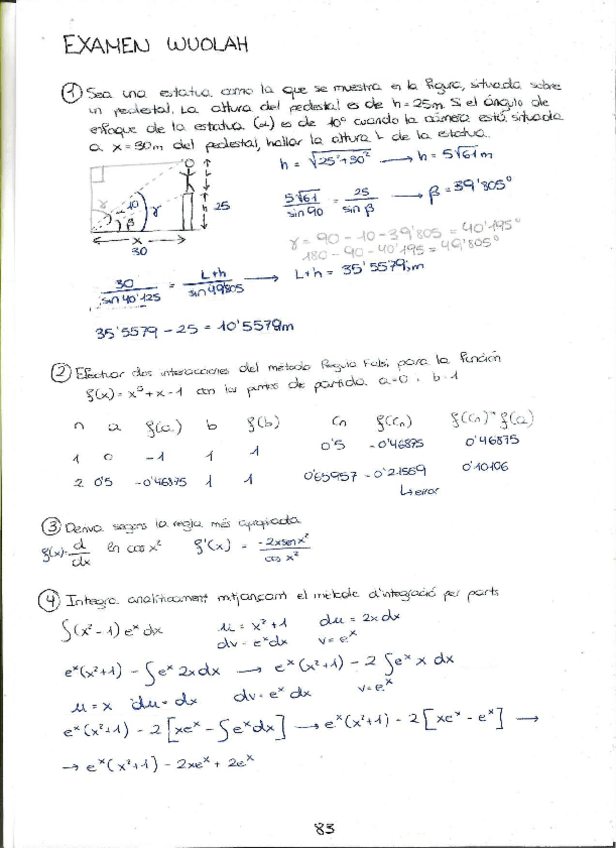 EXAMEN WUOLAH
① Sea una estatua como la que se muestra en la figura, situada sobre
un pedestal. La altura del pedestal es de h=25m. Si el ángulo de
enfoque de la estatua (α) es de 10º cuando la cámera está situada
a x=30m del pedestal, hallar la altura L de la estatua.
h = √25²+30² → h = 5√61 m
5√61/sin90 = 25/sin β → β = 39'805º
γ = 90-10-39'805 = 40'195º
180-90-40'195 = 49'805º
γ 10 β γ L h 25
x
30
30/sin40'125 = L+h/sin49'805 → L+h = 35'5579;m
35'5579 - 25 = 10'5579m
② Efectuar dos interacciones del método Regula Falsi para la función
f(x) = x⁵+x-1 con los puntos de partida a=0 , b=1
n a f(a) b f(b) Cn f(Cn) f(Cn)*f(a)
1 0 -1 1 1 0'5 -0'46875 0'46875
2 0'5 -0'46875 1 1 0'65957 -0'21559 0'10106
↳error
③ Deriva segons la regla més apropiada
f(x)= d/dx ln cos x² f'(x) = -2xsenx²/cos x²
④ Integra analíticament mitjançant el mètode d'integració per parts
∫(x²-1)eˣdx u = x²+1 du = 2xdx
dv = eˣdx v=eˣ
eˣ(x²+1) - ∫eˣ2xdx → eˣ(x²+1) - 2∫eˣ x dx
u = x du=dx dv=eˣ dx v=eˣ
eˣ(x²+1) - 2[xeˣ - ∫eˣdx] → eˣ(x²+1) - 2[xeˣ - eˣ] →
→ eˣ(x²+1) - 2xeˣ + 2eˣ
83